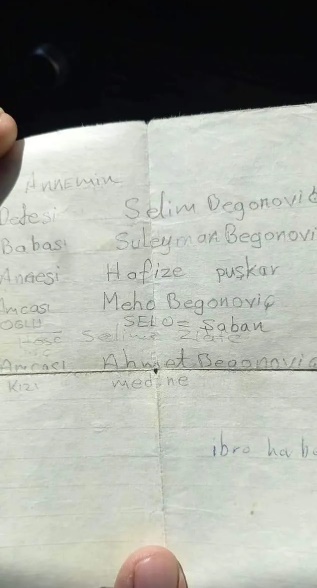 Annemin
Dedesi Selim Begonoviç
Babası Suleyman Begonovi
Annesi Hafize puşkar
Amcası Meho Begonoviç
OĞLU SELO = Şaban
Amcası Ahmet Begonoviç
Kızı medine
ibro